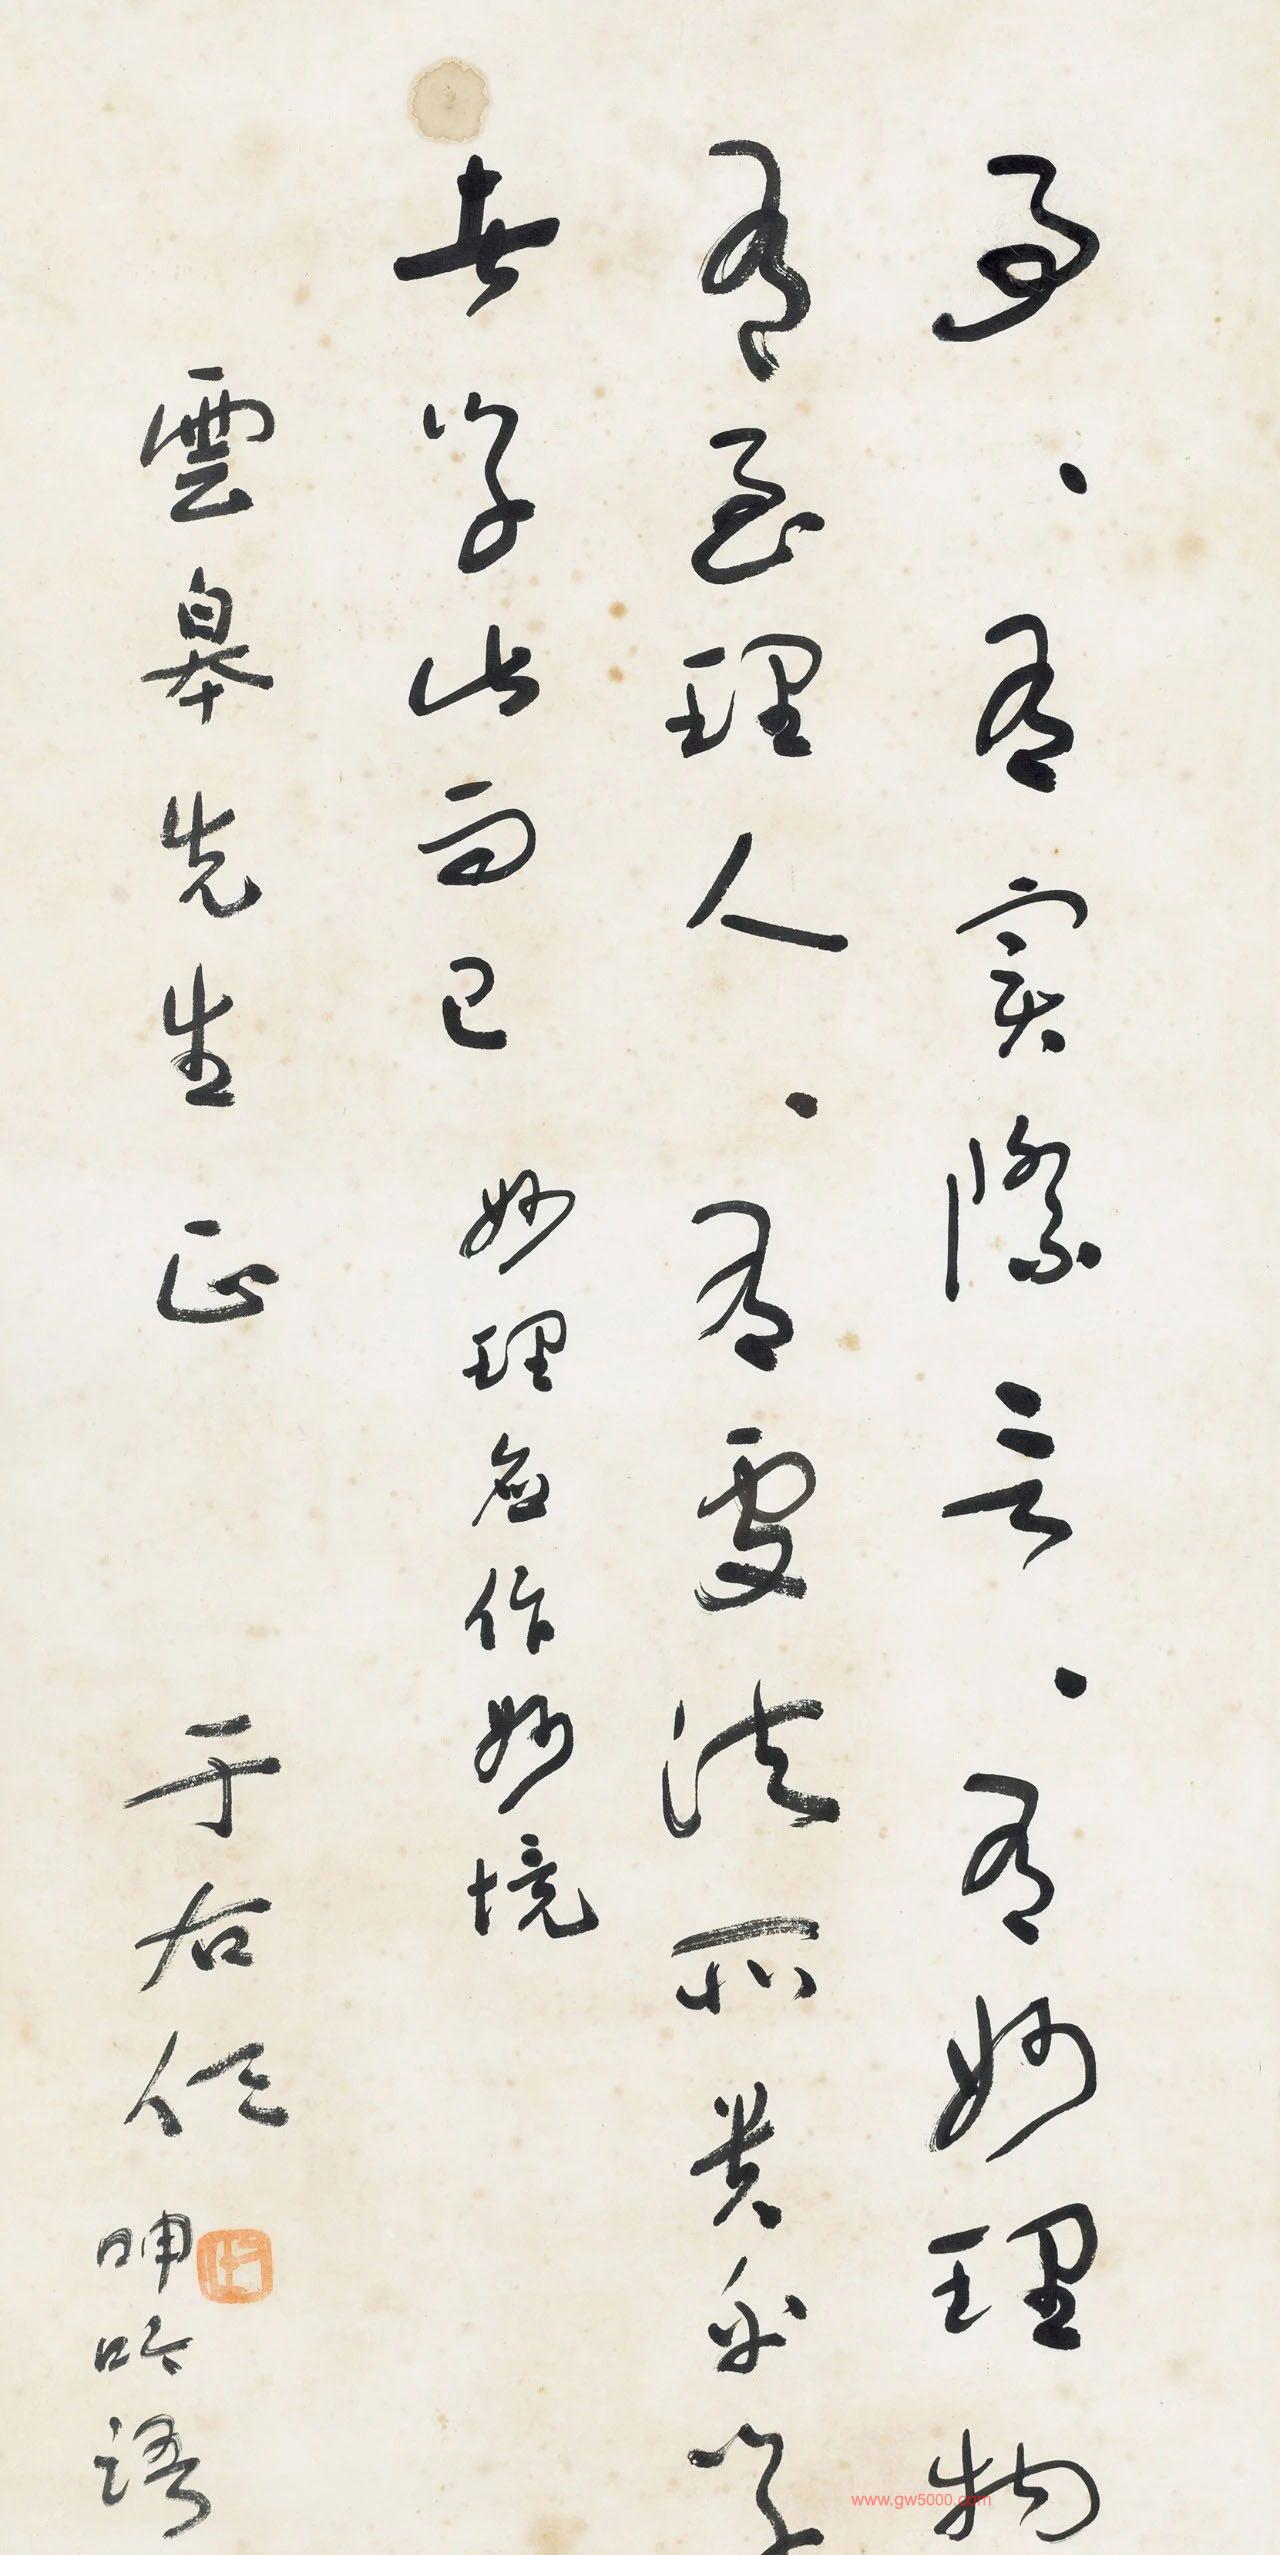 事、有實際言、有妙理物
有至理人、有處法所貴乎學
者學此而已 妙理應作妙境
雲皋先生正 于右任
呻吟語
www.gw5000.com